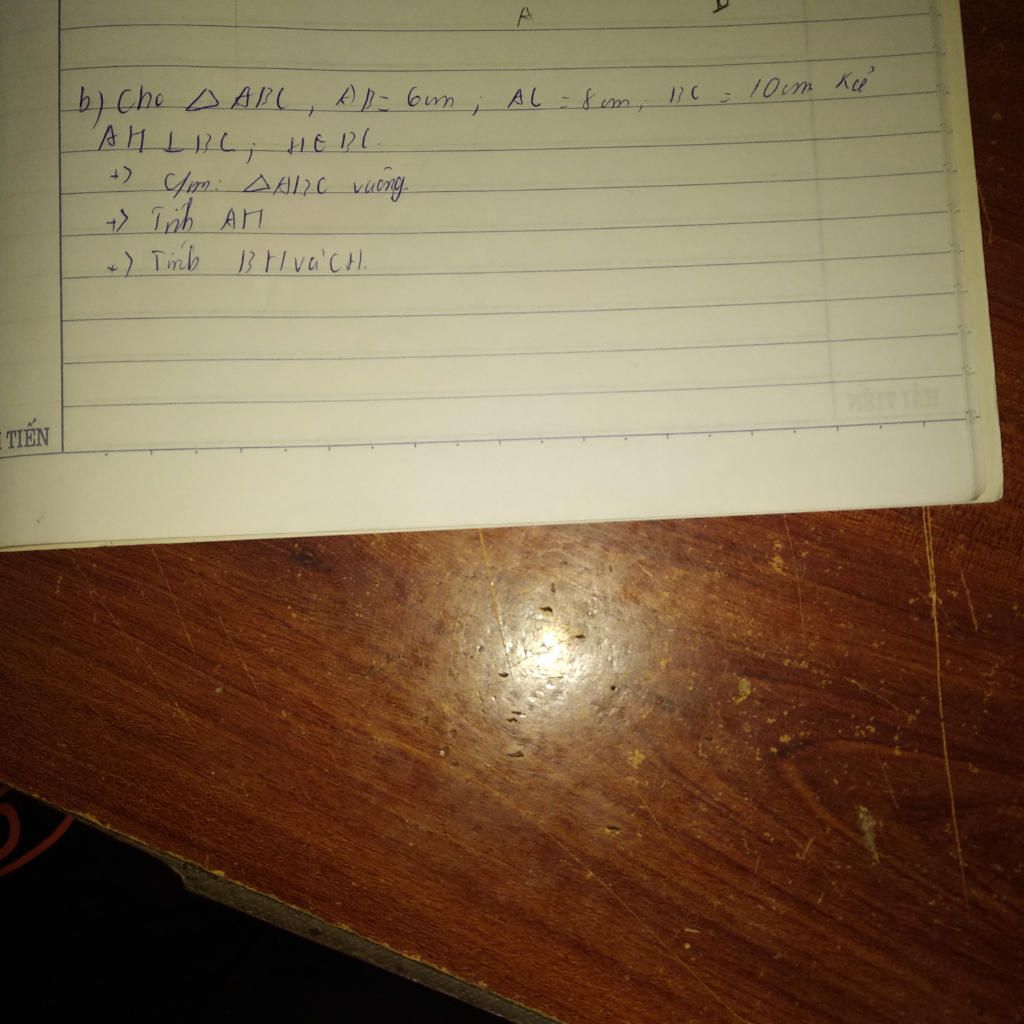 A
b) Cho △ ABC, AB = 6cm; AC = 8cm; BC = 10cm Kẻ
AH ⊥ BC; H ∈ BC.
+) C/m: △ABC vuông.
+) Tính AH
+) Tính BH và CH.
TIẾN
HẢI TIẾN